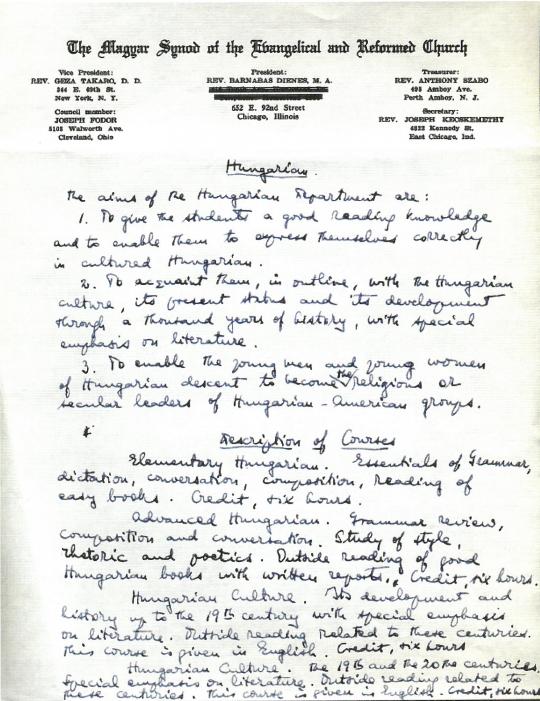 The Magyar Synod of the Evangelical and Reformed Church
Vice President:
REV. GEZA TAKARO, D. D.
344 E. 69th St.
New York, N. Y.
Council member:
JOSEPH FODOR
5105 Walworth Ave.
Cleveland, Ohio
President:
REV. BARNABAS DIENES, M. A.
652 E. 92nd Street
Chicago, Illinois
Treasurer:
REV. ANTHONY SZABO
495 Amboy Ave.
Perth Amboy, N. J.
Secretary:
REV. JOSEPH KECSKEMETHY
4822 Kennedy St.
East Chicago, Ind.
Hungarian.
The aims of the Hungarian Department are:
1. To give the students a good reading knowledge
and to enable them to express themselves correctly
in cultured Hungarian.
2. To acquaint them, in outline, with the Hungarian
culture, its present status and its development
through a thousand years of history, with special
emphasis on literature.
3. To enable the young men and young women
of Hungarian descent to become the religious or
secular leaders of Hungarian-American groups.
Description of Courses
Elementary Hungarian. Essentials of Grammar,
dictation, conversation, composition, reading of
easy books. Credit, six hours.
Advanced Hungarian. Grammar review,
composition and conversation. Study of style,
rhetoric and poetics. Outside reading of good
Hungarian books with written reports. Credit, six hours.
Hungarian Culture. Its development and
history up to the 19th century with special emphasis
on literature. Outside reading related to these centuries.
This course is given in English. Credit, six hours
Hungarian Culture. The 19th and the 20th centuries.
Special emphasis on literature. Outside reading related to
these centuries. This course is given in English. Credit, six hours